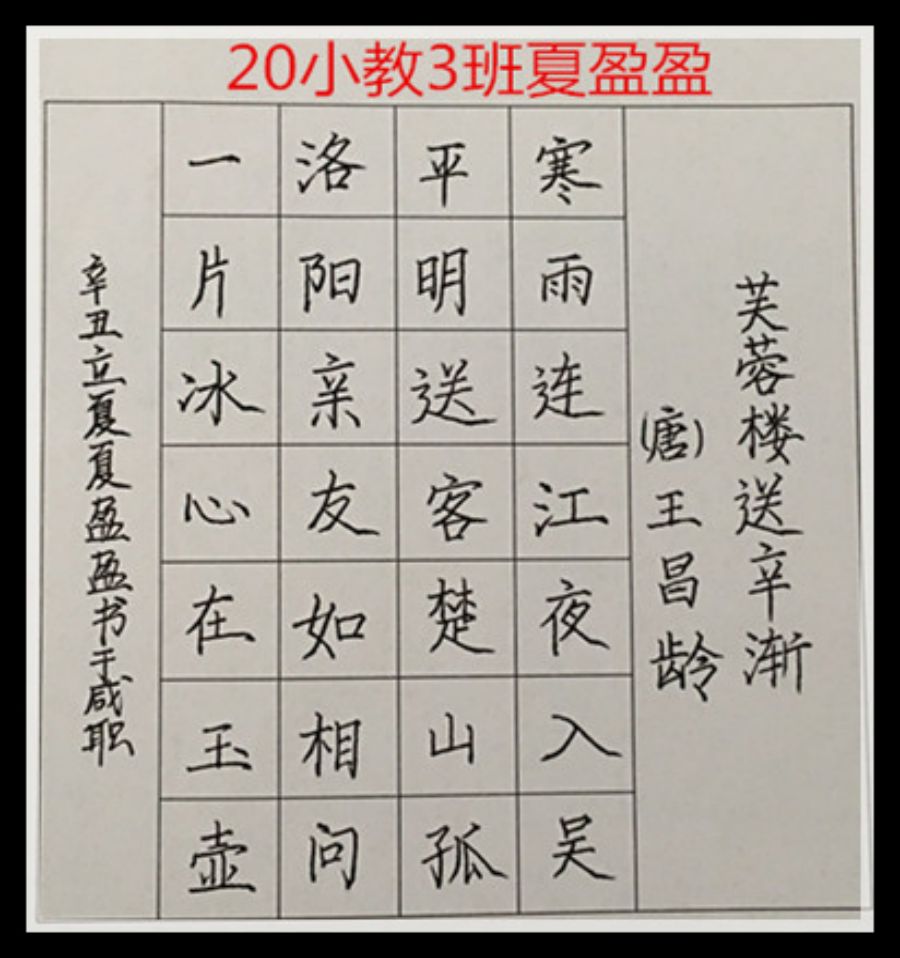 20小教3班夏盈盈
芙蓉楼送辛渐
(唐)王昌龄
寒雨连江夜入吴
平明送客楚山孤
洛阳亲友如相问
一片冰心在玉壶
辛丑立夏夏盈盈书于咸职